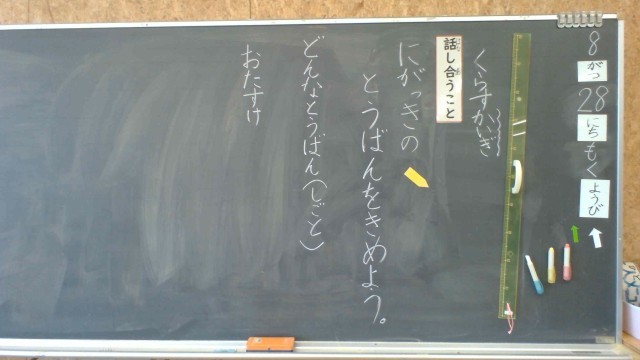 8がつ28にちもくようび
くらすかいぎ
話し合うこと
にがっきの
とうばんをきめよう。
どんなとうばん(しごと)
おたすけ